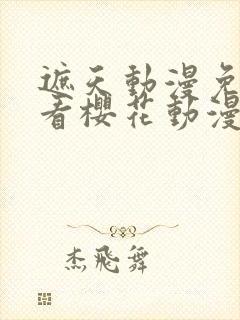 遮天動漫免
看櫻花動漫
杰飛舞